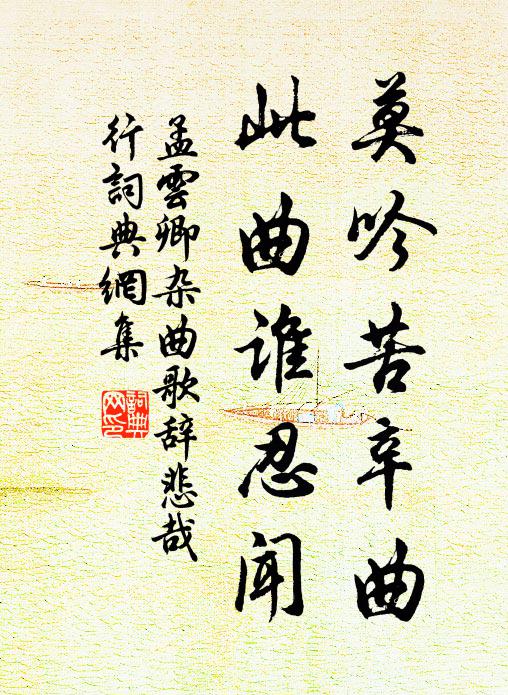 莫吟苦辛曲
此曲谁忍闻
孟雲卿杂曲歌辞悲哉
行詞典網集
詞典
网印